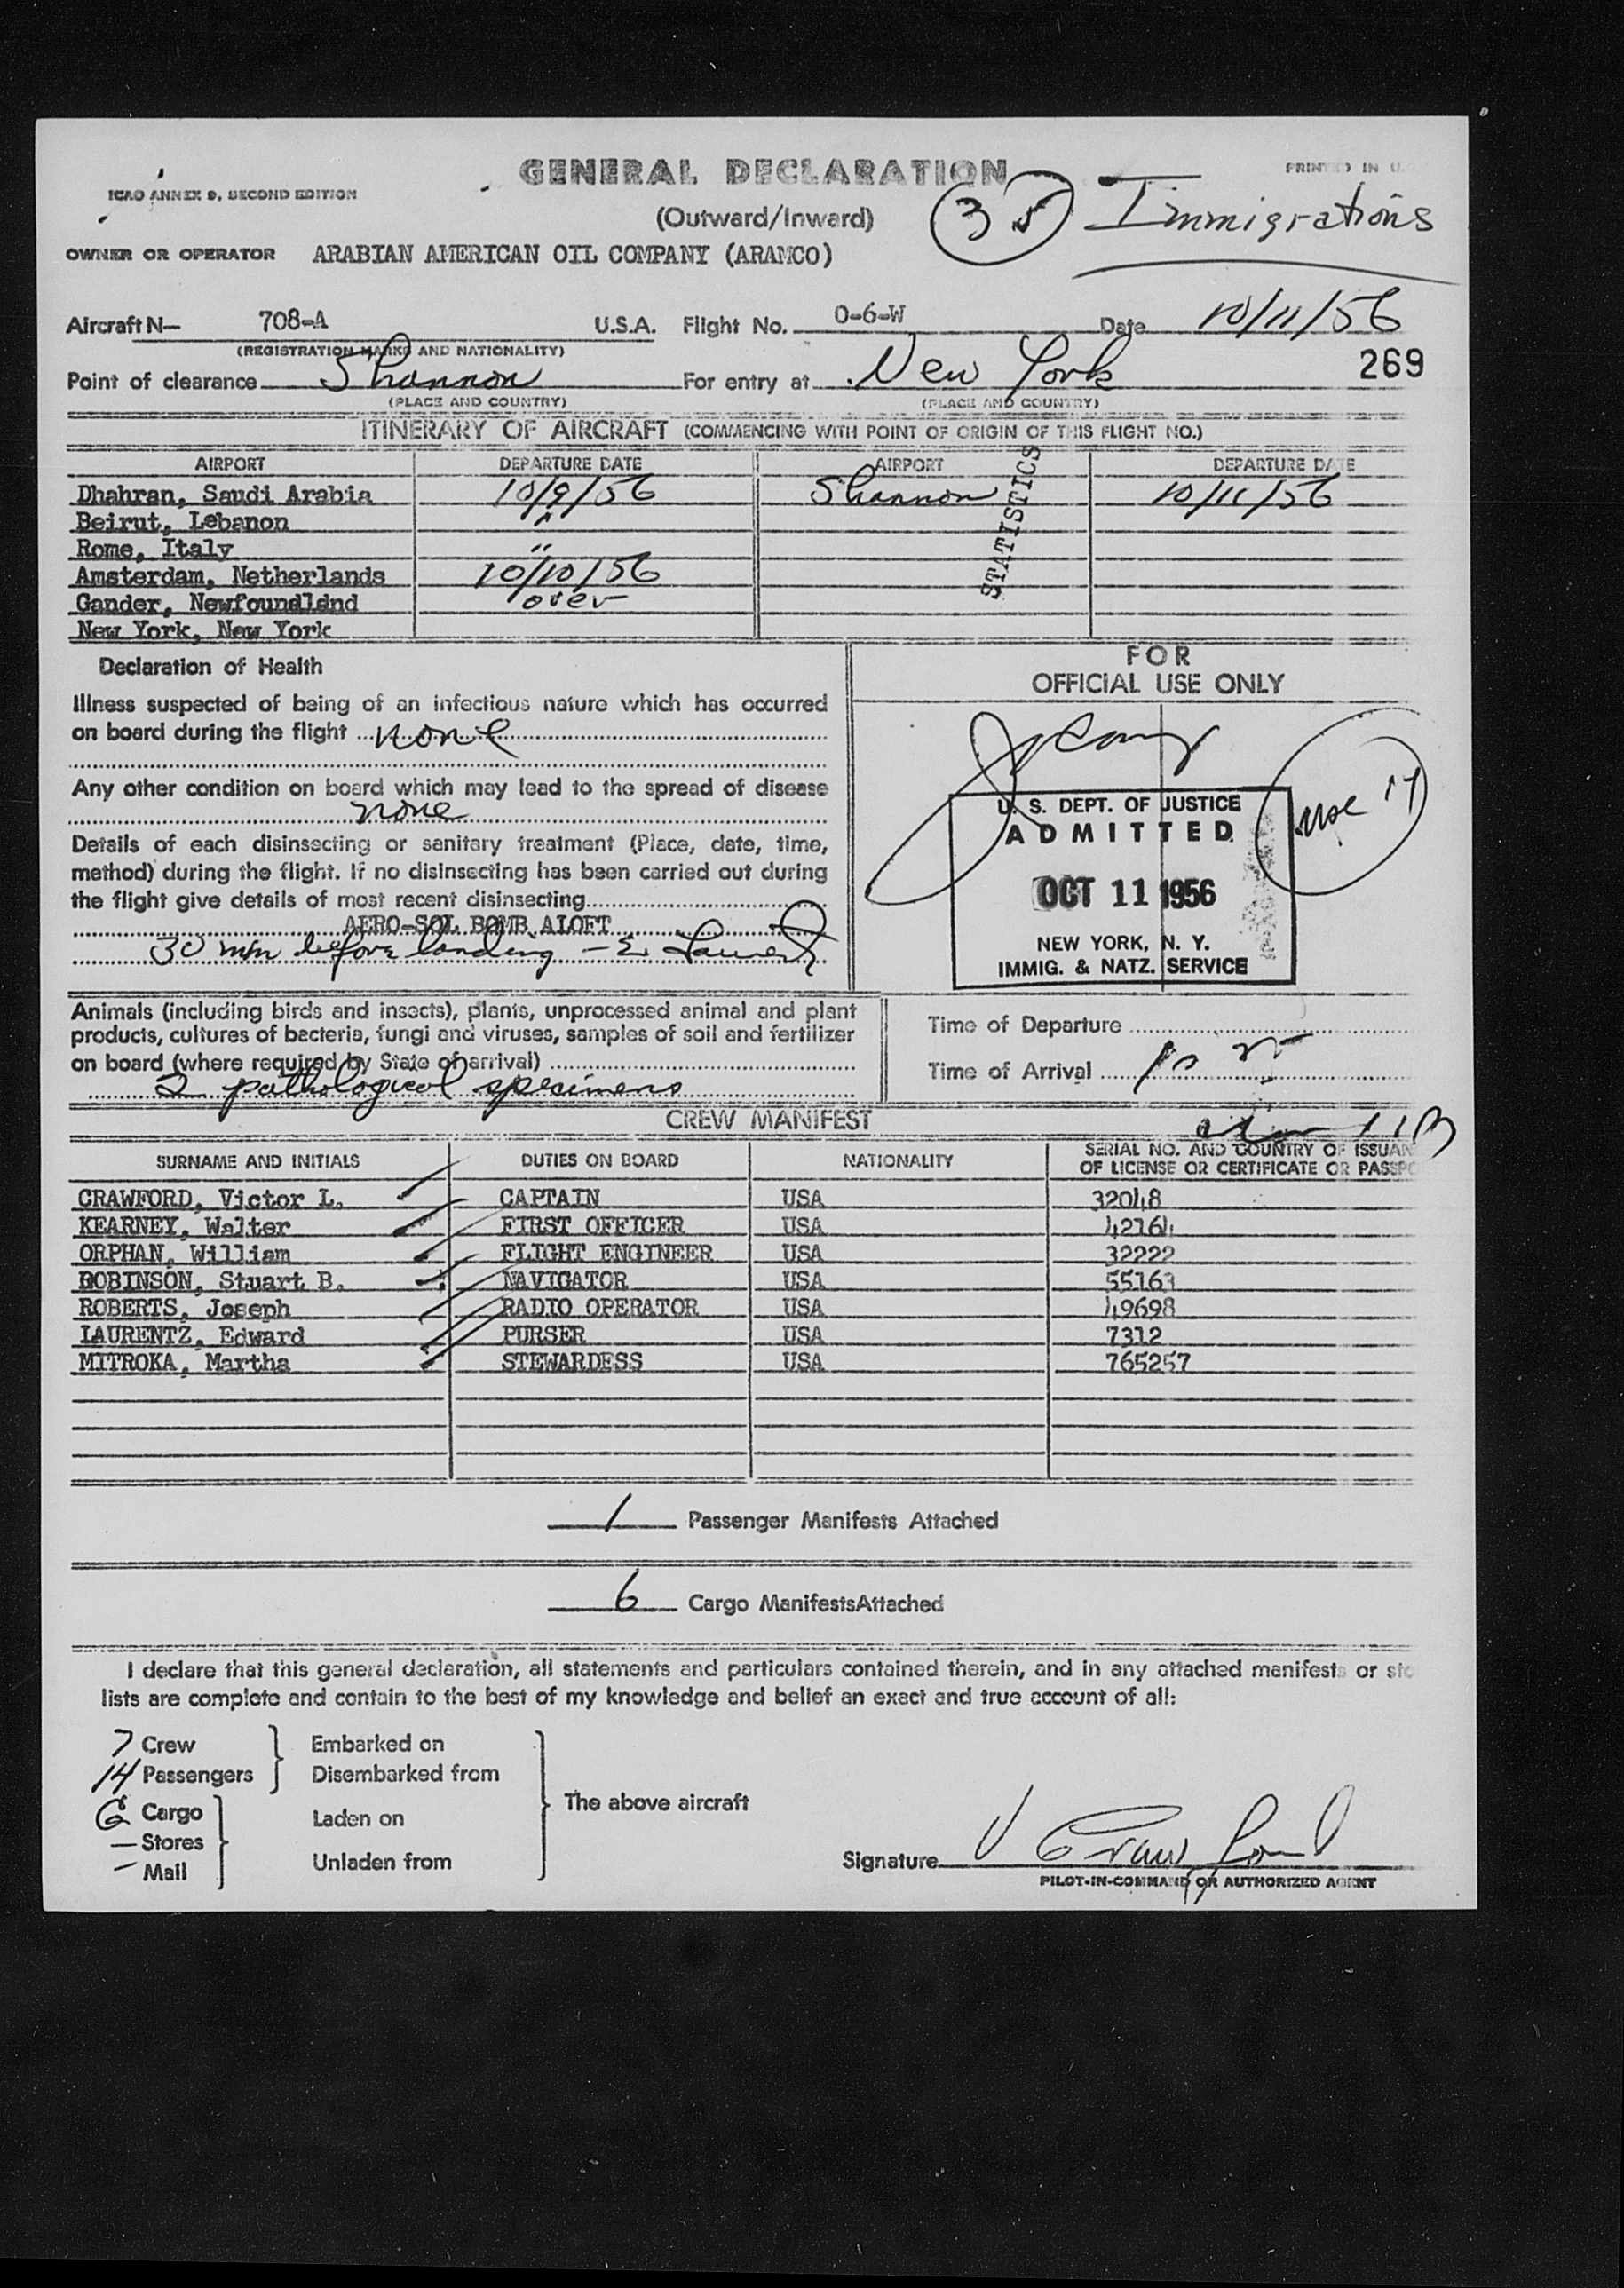 GENERAL DECLARATION
PRINTED IN U.
ICAO ANNEX 9, SECOND EDITION
(Outward/Inward)
35 Immigrations
OWNER OR OPERATOR ARABIAN AMERICAN OIL COMPANY (ARAMCO)
Aircraft N— 708-A U.S.A. Flight No. 0-6-W Date 10/11/56
(REGISTRATION MARKS AND NATIONALITY)
269
Point of clearance Shannon For entry at New York
(PLACE AND COUNTRY) (PLACE AND COUNTRY)
ITINERARY OF AIRCRAFT (COMMENCING WITH POINT OF ORIGIN OF THIS FLIGHT NO.)
AIRPORT DEPARTURE DATE AIRPORT DEPARTURE DATE
Dhahran, Saudi Arabia 10/9/56 Shannon 10/11/56
Beirut, Lebanon "
Rome, Italy "
Amsterdam, Netherlands 10/10/56
Gander, Newfoundland over
New York, New York
STATISTICS
Declaration of Health
Illness suspected of being of an infectious nature which has occurred
on board during the flight none
Any other condition on board which may lead to the spread of disease
none
Details of each disinsecting or sanitary treatment (Place, date, time,
method) during the flight. If no disinsecting has been carried out during
the flight give details of most recent disinsecting
AERO-SOL BOMB ALOFT
30 min before landing — E
FOR
OFFICIAL USE ONLY
U. S. DEPT. OF JUSTICE
ADMITTED
OCT 11 1956
NEW YORK, N. Y.
IMMIG. & NATZ. SERVICE
Animals (including birds and insects), plants, unprocessed animal and plant
products, cultures of bacteria, fungi and viruses, samples of soil and fertilizer
on board (where required by State of arrival)
2 pathological specimens
Time of Departure
Time of Arrival
CREW MANIFEST
SURNAME AND INITIALS DUTIES ON BOARD NATIONALITY SERIAL NO. AND COUNTRY OF ISSUAN
OF LICENSE OR CERTIFICATE OR PASSPO
CRAWFORD, Victor L. CAPTAIN USA 32048
KEARNEY, Walter FIRST OFFICER USA 42164
ORPHAN, William FLIGHT ENGINEER USA 32222
ROBINSON, Stuart B. NAVIGATOR USA 55163
ROBERTS, Joseph RADIO OPERATOR USA 49698
LAURENTZ, Edward PURSER USA 7312
MITROKA, Martha STEWARDESS USA 765257
1 Passenger Manifests Attached
6 Cargo Manifests Attached
I declare that this general declaration, all statements and particulars contained therein, and in any attached manifests or sto
lists are complete and contain to the best of my knowledge and belief an exact and true account of all:
7 Crew Embarked on
14 Passengers Disembarked from
6 Cargo Laden on
The above aircraft
— Stores
— Mail Unladen from
Signature V Crawford
PILOT-IN-COMMAND OR AUTHORIZED AGENT